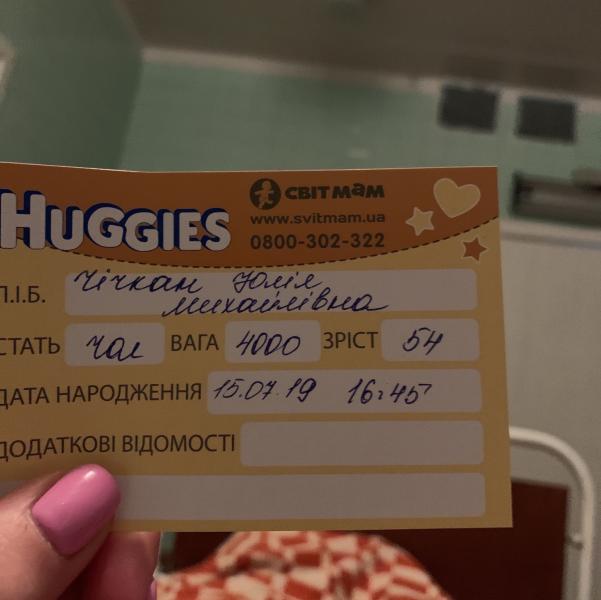 HUGGIES
СВІТ МАМ
www.svitmam.ua
0800-302-322
П.І.Б. Чічкан Юлія
Михайлівна
СТАТЬ чол ВАГА 4000 ЗРІСТ 54
ДАТА НАРОДЖЕННЯ 15.07.19 16:45
ДОДАТКОВІ ВІДОМОСТІ